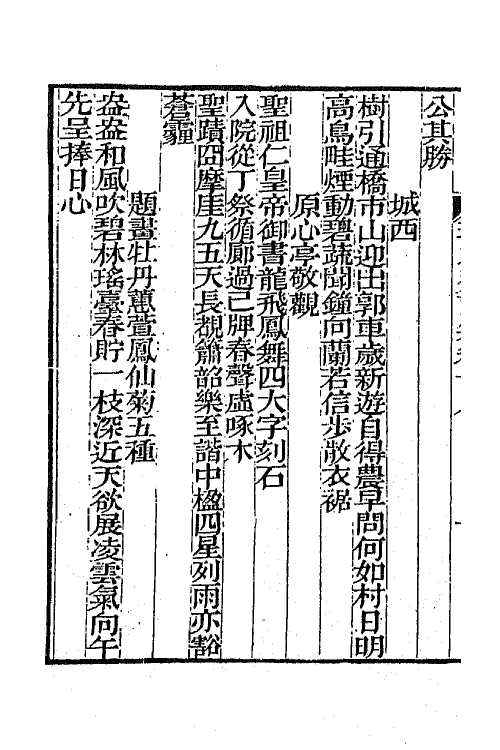 公其勝
城西
樹引通橋市山迎出郭車歲新遊自得農早問何如村日明
高鳥畦煙動碧蔬聞鐘向蘭若信步散衣裾
原心亭敬觀
聖祖仁皇帝御書龍飛鳳舞四大字刻石
入院從丁祭循廊過己牌春聲虛啄木
聖蹟囧摩崖九五天長覩簫韶樂至諧中楹四星列雨亦豁
蒼霾
題畫牡丹蕙萱鳳仙菊五種
盎盎和風吹碧林瑤臺春貯一枝深近天欲展凌雲氣向午
先呈捧日心